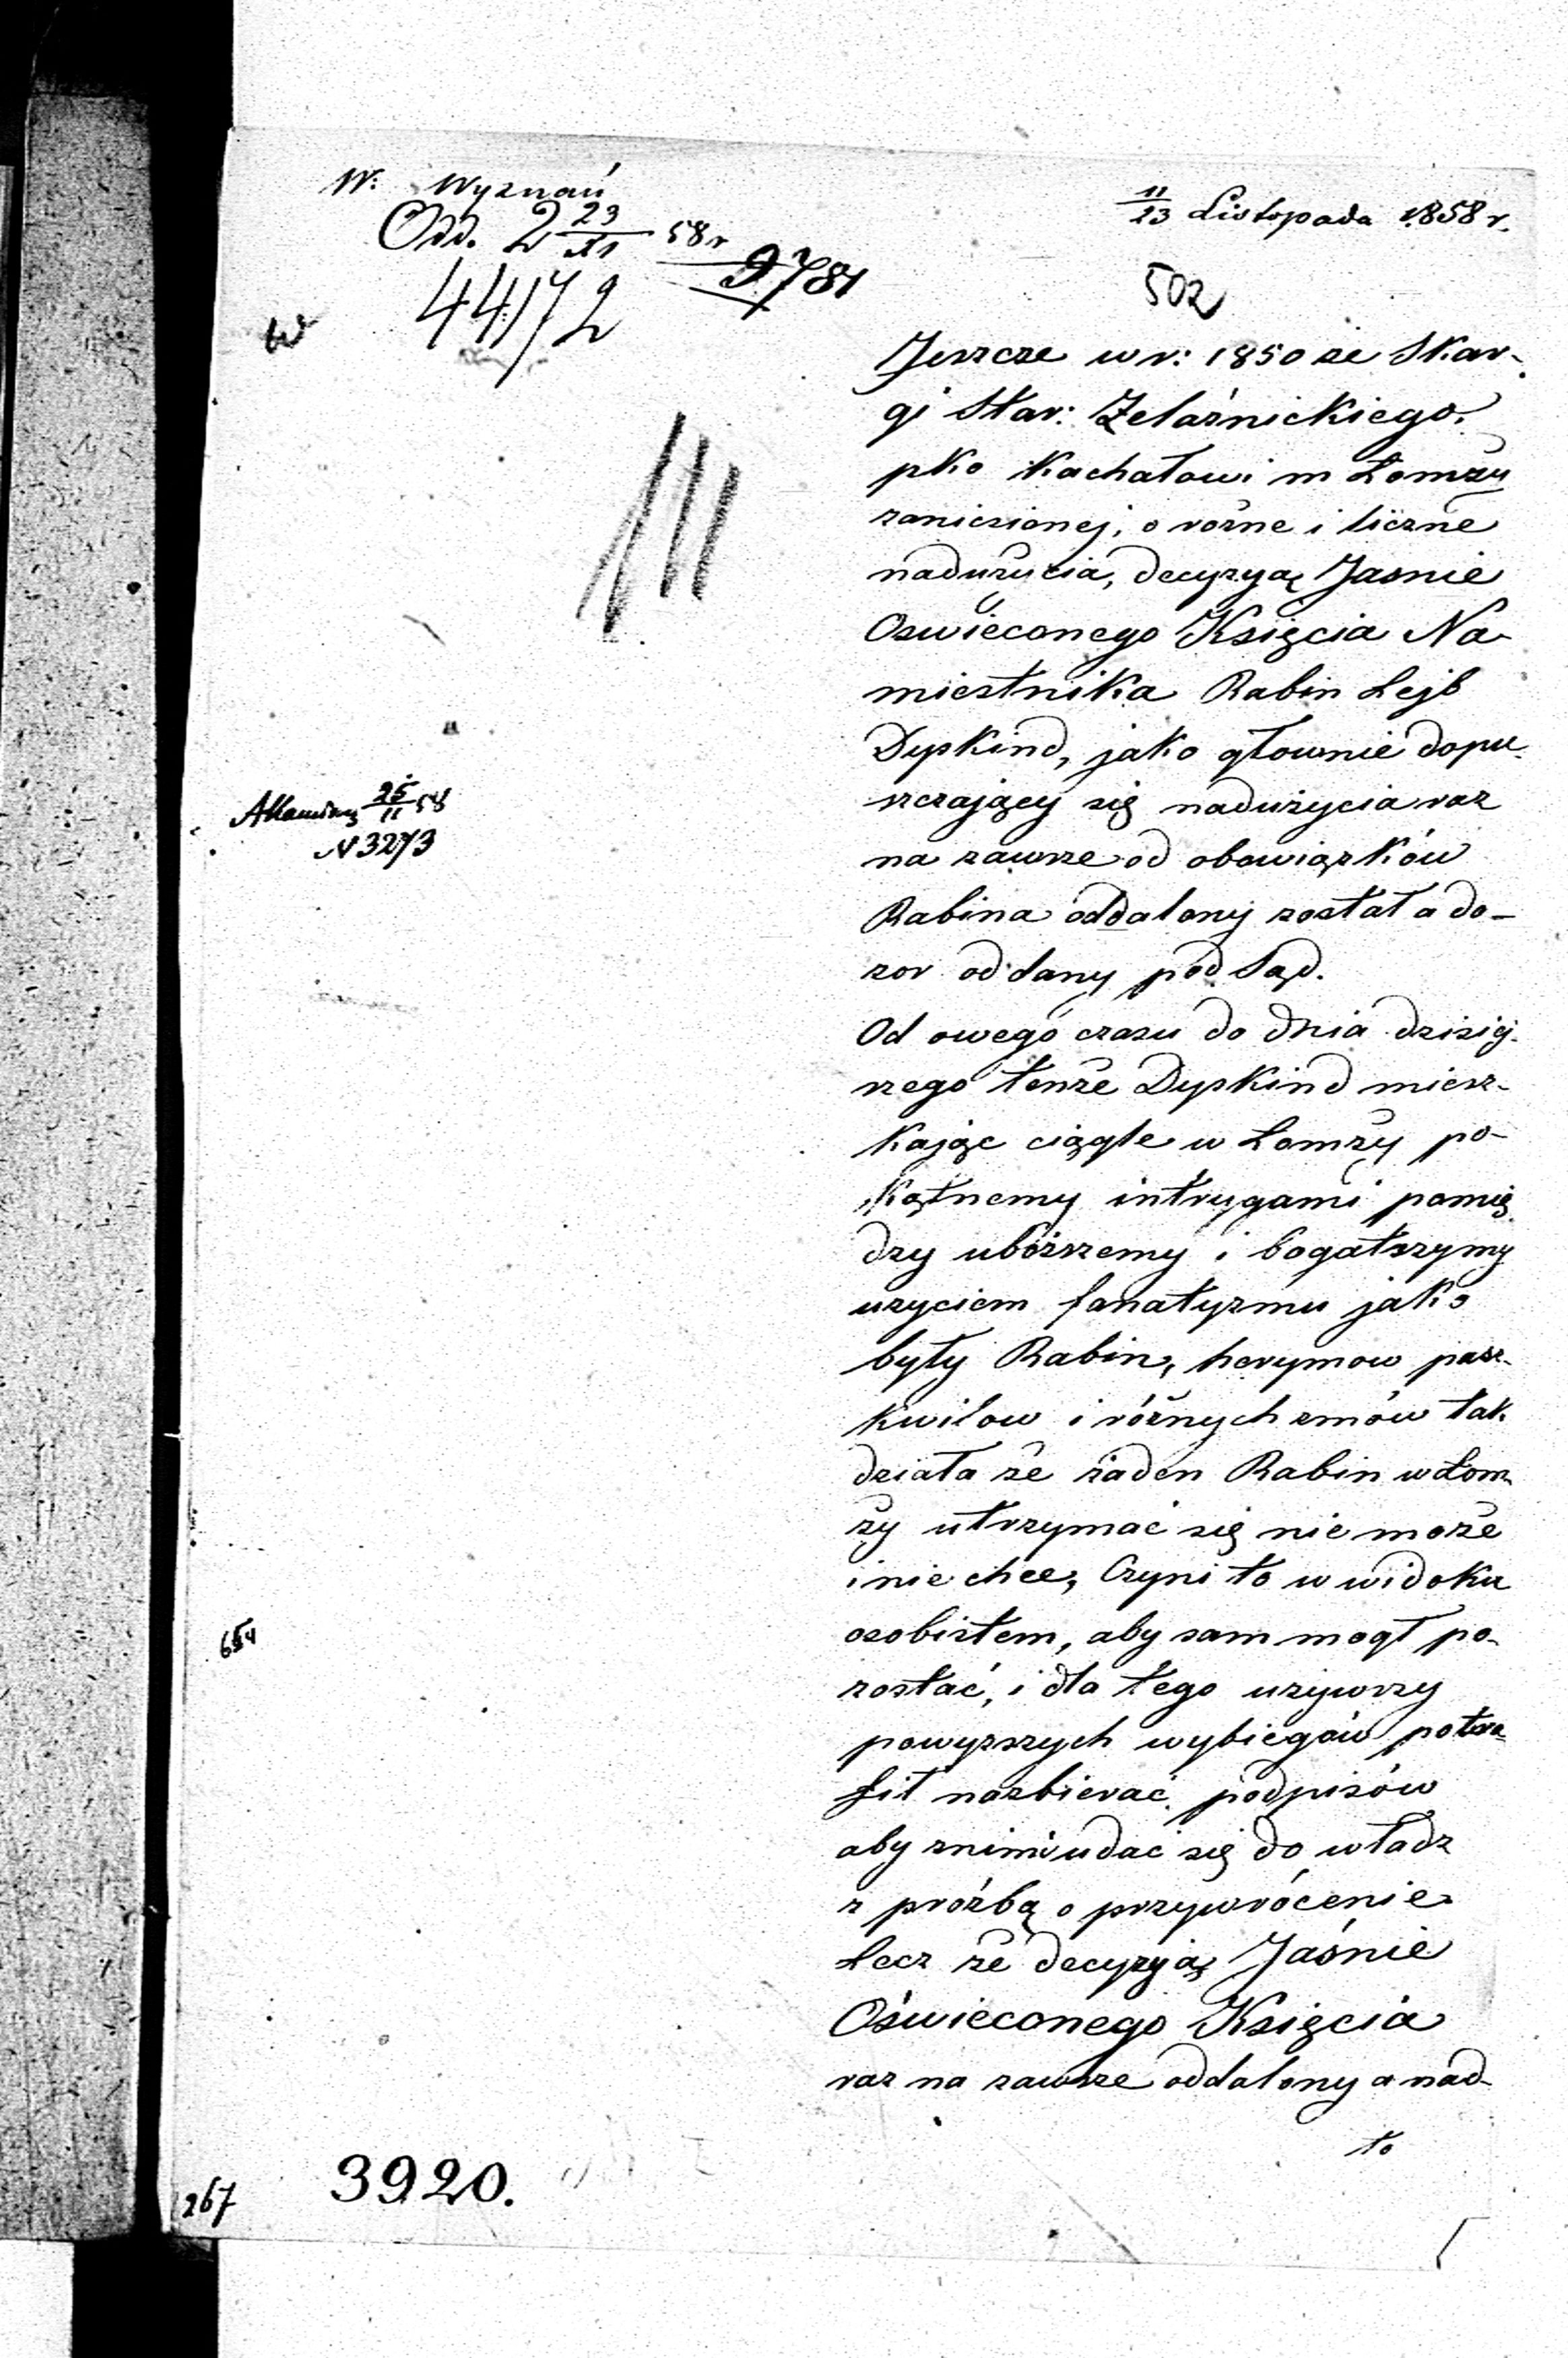 W: Wyznań
Odd. 2 23/XI 58 r
9781
44172
11/23 Listopada 1858 r.
502
Jeszcze w r: 1850 ze Skar-
gi Star: Zelaźnickiego
pko Kachałowi m Łomży
zaniesionej, o rożne i liczne
nadużycia, decyzyą Jasnie
Oswieconego Księcia Na-
miestnika Rabin Lejb
Dyskind, jako głownie dopu-
szczający się nadużycia raz
na zawsze od obowiązków
Rabina oddalony został a do-
zor oddany pod Sąd.
Od owego czasu do dnia dzisiej-
szego tenże Dyskind miesz-
kając ciągle w Łomży po-
kątnemy intrygami pomię
dzy uboższemy i bogatszymy
użyciem fanatyzmu jako
były Rabin, herymow pasz-
kwilow i różnych zmów tak
działa że żaden Rabin w Łom-
ży utrzymać się nie może
i nie chce, Czyni to w widoku
osobistem, aby sam mogł po-
zostać, i dla tego używszy
powyższych wybiegów potra-
fił nazbierać podpisów
aby znimi udac się do władz
z próżbą o przywrócenie
Lecz że decyzyją Jaśnie
Oświeconego Księcia
raz na zawsze oddalony a nad-
to
25/11 58
N 3273
654
267
3920.